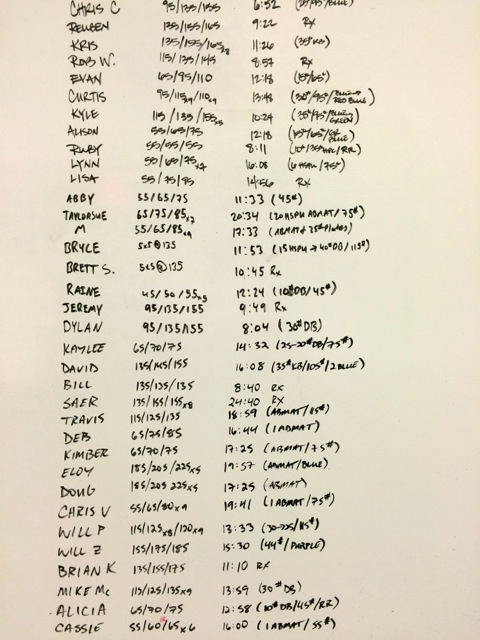 CHRIS C 95/135/155 6:52
REUBEN 135/155/165 9:22 RX
KRIS 135/155/165x8 11:26 (35# KB)
ROB W. 115/135/145 8:57 RX
EVAN 65/95/110 12:18 (15#/65#)
CURTIS 95/115x9/110x9 13:48 (30#/95#/ RED BLUE)
KYLE 115/135/155x5 10:24 (35#/95#/ GREEN)
ALISON 55/65/75 12:18
RUBY 55/55/55 8:11
LYNN 55/65/75x7 16:08 (6 HSPU/75#)
LISA 55/75/85 14:56 RX
ABBY 55/65/75 11:33 (45#)
TAYLOR SUE 65/75/85x7 20:34 (20 HSPU ABMAT/75#)
M 55/65/85x9 17:33 (ABMAT+ 25# Plates)
BRYCE 5x5@135 11:53 (15 HSPU → 40# DB/115#)
BRETT S. 5x5@135 10:45 Rx
RAINE 45/50/55x5 12:24 (10# DB/45#)
JEREMY 95/135/155 9:49 Rx
DYLAN 95/135/155 8:04 (30# DB)
KAYLEE 65/70/75 14:32 (25-20# DB/75#)
DAVID 135/145/155 16:08 (35# KB/105#/2 BLUE)
BILL 135/135/135 8:40 RX
SAER 135/155/155x8 24:40 RX
TRAVIS 115/125/135 18:59 (ABMAT/115#)
DEB 65/75/85 16:44 (1 ABMAT)
KIMBER 65/70/75 17:25 (ABMAT/75#)
ELOY 185/205/225x5 19:57 (ABMAT/BLUE)
DOUG 185/205 225x5 17:25 (ABMAT)
CHRIS V 55/65/80x9 19:41 (1 ABMAT/75#)
WILL P 115/125x8/120x9 13:33 (30-25/115#)
WILL Z 155/175/185 15:30 (44#/PURPLE)
BRIAN K 135/155/175 11:10 RX
MIKE Mc 115/125/135x9 13:59 (30# DB)
ALICIA 65/70/75 12:58 (10# DB/45#/RR)
CASSIE 55/60/65x6 16:00 (1 ABMAT/55#)